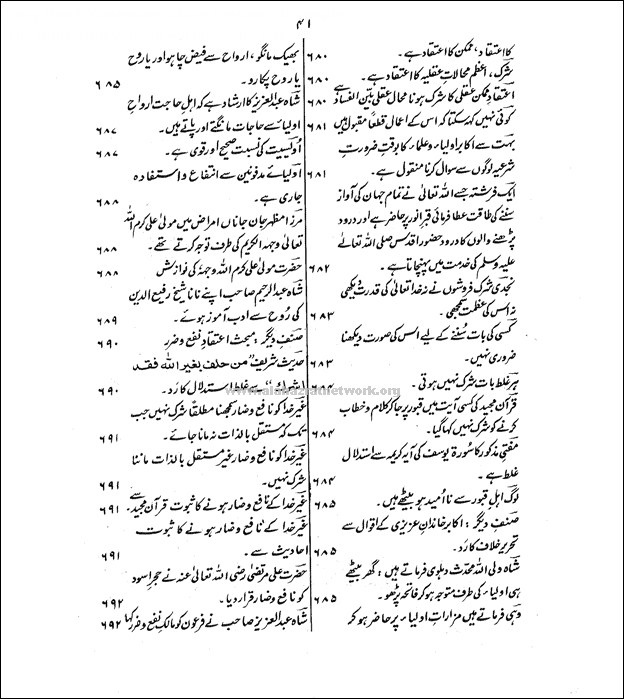 ۴۱
کا اعتقاد، ممکن کا اعتقاد ہے۔ ۶۸۰
شرک، اعظم محالاتِ عقلیہ کا اعتقاد ہے۔ ۶۸۰
اعتقادِ ممکن عقلی کا شرک ہونا محال عقلی بیّن الفساد ہے ۶۸۰
کوئی نہیں کہہ سکتا کہ اس کے اعمال قطعاً مقبول ہیں ۶۸۱
بہت سے اکابر اولیاء و علماء کا بوقتِ ضرورتِ
شرعیہ لوگوں سے سوال کرنا منقول ہے۔ ۶۸۱
ایک فرشتہ جسے اللہ تعالٰی نے تمام جہان کی آواز
سننے کی طاقت عطا فرمائی قبر انور پر حاضر ہے اور درود
پڑھنے والوں کا درود حضور اقدس صلی اللہ تعالٰے
علیہ وسلم کی خدمت میں پہنچاتا ہے۔ ۶۸۲
نجدی شرک فروشوں نے نہ خدا تعالٰی کی قدرت دیکھی
نہ اس کی عظمت سمجھی۔ ۶۸۳
کسی کی بات سُننے کے لیے اس کی صورت دیکھنا
ضروری نہیں۔ ۶۸۳
ہر غلط بات شرک نہیں ہوتی۔ ۶۸۴
قرآن مجید کی کسی آیت میں قبور پر جا کر کلام و خطاب
کرنے کو شرک نہیں کہا گیا۔ ۶۸۴
مفتیِ مذکور کا سُورۃ یوسف کی آیہ کریمہ سے استدلال
غلط ہے۔ ۶۸۴
لوگ اہلِ قبور سے نا اُمید ہو بیٹھے ہیں۔ ۶۸۵
صنفِ دیگر : اکابر خاندانِ عزیزی کے اقوال سے
تحریر خلاف کا رَد۔ ۶۸۵
شاہ ولی اللہ محدّث دہلوی فرماتے ہیں : گھر بیٹھے
ہی اولیاء کی طرف متوجہ ہو کر فاتحہ پڑھو۔ ۶۸۵
وہی فرماتے ہیں مزاراتِ اولیاء پر حاضر ہو کر
بھیک مانگو، ارواح سے فیض چاہو اور یا روح
یا روح پکارو۔ ۶۸۵
شاہ عبدالعزیز کا ارشاد ہے کہ اہلِ حاجت ارواحِ
اولیاء سے حاجات مانگتے اور پاتے ہیں۔ ۶۸۷
اُویسیت کی نسبت صحیح اور قوی ہے۔ ۶۸۷
اولیائے مدفونین سے انتفاع و استفادہ
جاری ہے۔ ۶۸۸
مرزا مظہر جانِ جاناں امراض میں مولٰی علی کرم اللہ
تعالٰی وجہہ الکریم کی طرف توجہ کرتے تھے۔ ۶۸۸
حضرت مولٰی علی کرم اللہ وجہہٗ کی نوازش ۶۸۸
شاہ عبدالرحیم صاحب اپنے نانا شیخ رفیع الدین
کی رُوح سے ادب آموز ہوئے۔ ۶۸۹
صنفِ دیگر : مبحث اعتقادِ نفع و ضرر ۶۹۰
حدیث شریف "من حلف بغیر اللہ فقد
اشرک" سے غلط استدلال کا رَد۔ ۶۹۰
غیرِ خدا کو نافع و ضار سمجھنا مطلقاً شرک نہیں جب
تک کہ مستقل بالذات نہ مانا جائے۔ ۶۹۱
غیرِ خدا کو نافع و ضار غیر مستقل بالذات ماننا
شرک نہیں۔ ۶۹۱
غیرِ خدا کے نافع و ضار ہونے کا ثبوت قرآن مجید سے ۶۹۱
غیرِ خدا کے نافع و ضار ہونے کا ثبوت
احادیث سے۔ ۶۹۱
حضرت علی مرتضٰی رضی اللہ تعالٰی عنہ نے حجرِ اسود
کو نافع و ضار قرار دیا۔ ۶۹۲
شاہ عبدالعزیز صاحب نے فرعون کو مالکِ نفع و ضرر کہا ۶۹۲
www.alahazratnetwork.org